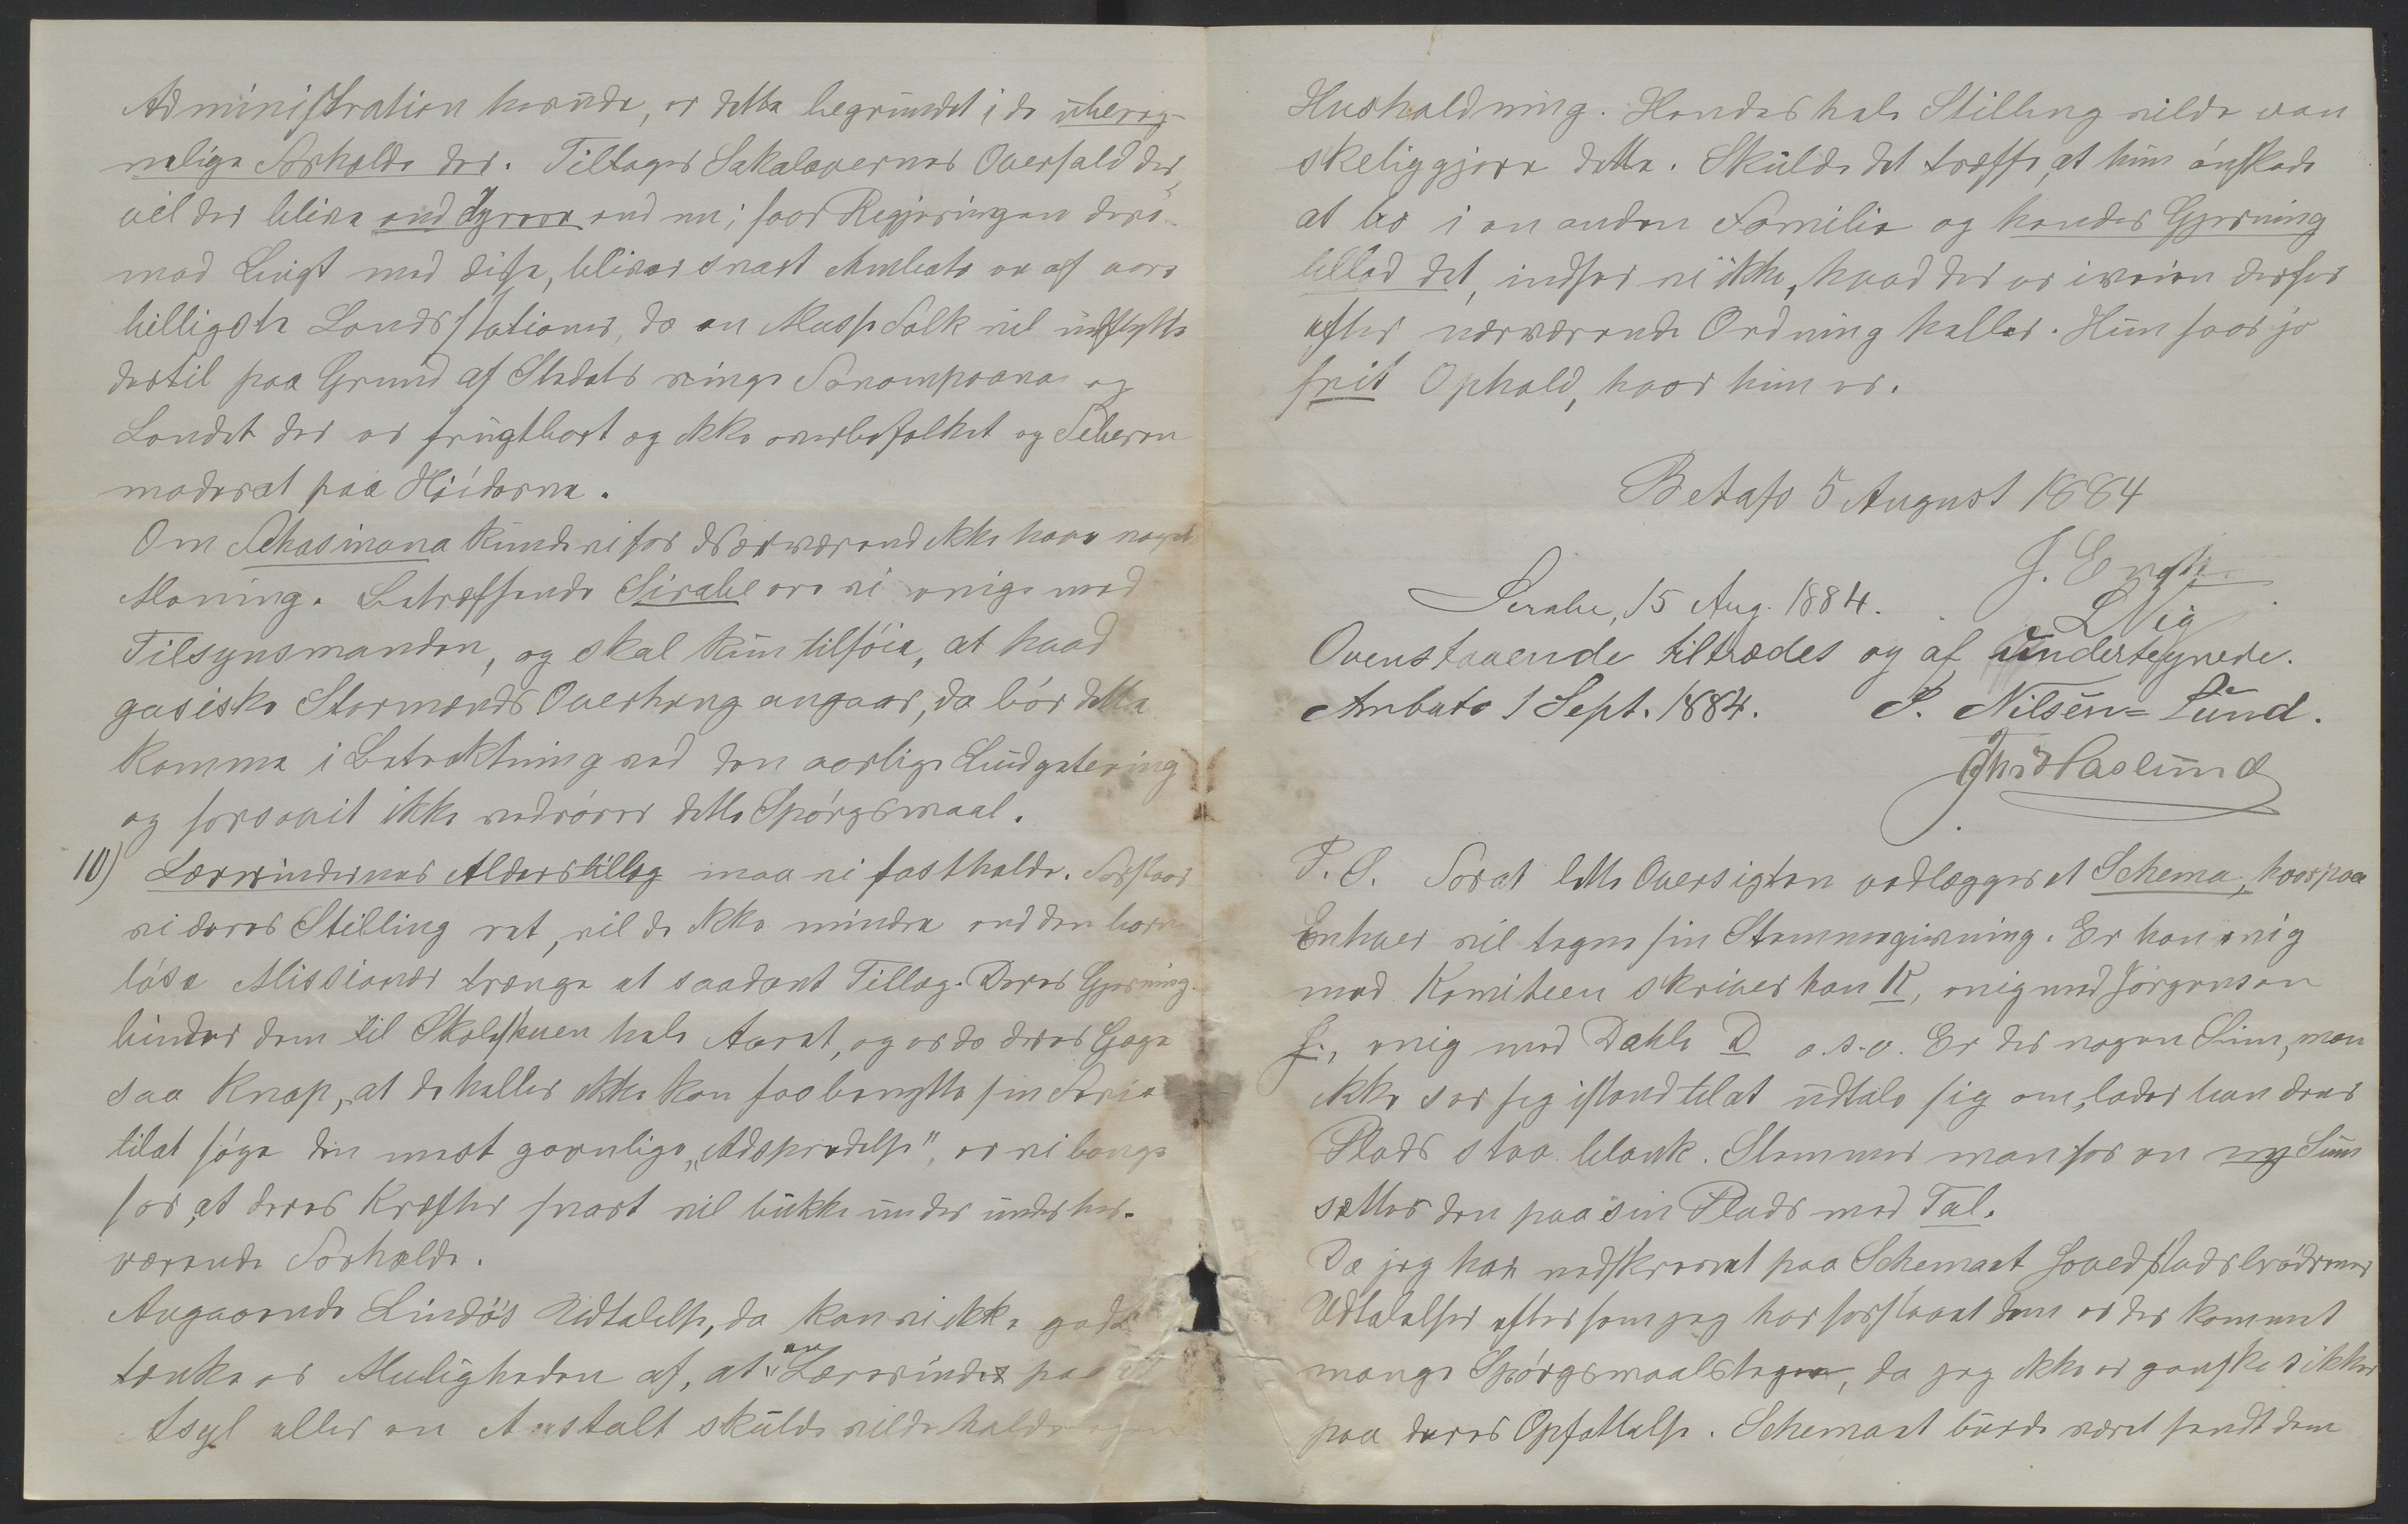 Administration herude, er dette begrundet i de ubereg-
nelige Forholde der. Tiltager Sakalavernes Overfald der,
vil der blive end dyrere end nu; faar Regjeringen deri-
mod Bugt med disse, bliver snart Ambato en af vore
billigste Landsstationer, da en Masse Folk vil indflytte
dertil paa Grund af Stedets ringe Fanompoana og
Landet der er frugtbart og ikke overbefolket og Feberen
moderat paa Høiderne.
Om Ilhasinana kunde vi for Nærværende ikke have noget
Mening. Betræffende Sirabe ere vi enige med
Tilsynsmanden, og skal kun tilføie, at hvad
gasiske Stormænds Overhæng angaar, da bør dette
komme i Betraktning ved den aarlige Budgetering
og forsaavit ikke vedrører dette Spørgsmaal.
10) Lærerindernes Alderstillæg maa vi fastholde. Forstaar
vi deres Stilling ret, vil de ikke mindre end den barn-
løse Missionær trænge et saadant Tillæg. Deres Gjerning
binder dem til Skolestuen hele Aaret, og er da deres Gage
saa knap, at de heller ikke kan faa benytte sin Ferie
til at søge den mest gavnlige „Adspredelse", er vi bange
for, at deres Kræfter snart vil bukke under under her-
værende Forholde.
Angaaende Lindøs Udtalelse, da kan vi ikke godt
tænke os Muligheden af, at en Lærerinde paa et
Asyl eller en Anstalt skulde ville holde egen
Husholdning. Hendes hele Stilling vilde van
skeliggjøre dette. Skulde det træffe, at hun ønskede
at bo i en anden Familie og hendes Gjerning
tillod det, indser vi ikke, hvad der er iveien derfor
efter nærværende Ordning heller. Hun faar jo
frit Ophold, hvor hun er.
Betafo 5 August 1884
J. Engh
Sirabe, 15 Aug. 1884.
L Vig
Ovenstaaende tiltrædes og af undertegnede.
Ambato 1 Sept. 1884. P. Nilsen-Lund.
P. S. For at lette Oversigten vedlægges et Schema, hvorpaa
Enhver vil tegne sin Stemmegivning. Er han enig
med Komiteen skriver han K, enig med Jørgensen
J., enig med Dahle D o.s.v. Er der nogen Sum, man
ikke ser sig istand til at udtale sig om, lader han dens
Plads staa blank. Stemmer man for en ny Sum
sættes den paa sin Plads med Tal.
Da jeg har nedskrevet paa Schemaet Hovedstadsbrødrenes
Udtalelser eftersom jeg har forstaaet dem er der kommet
mange Spørgsmaalstegn, da jeg ikke er ganske sikker
paa deres Opfattelse. Schemaet burde været sendt dem